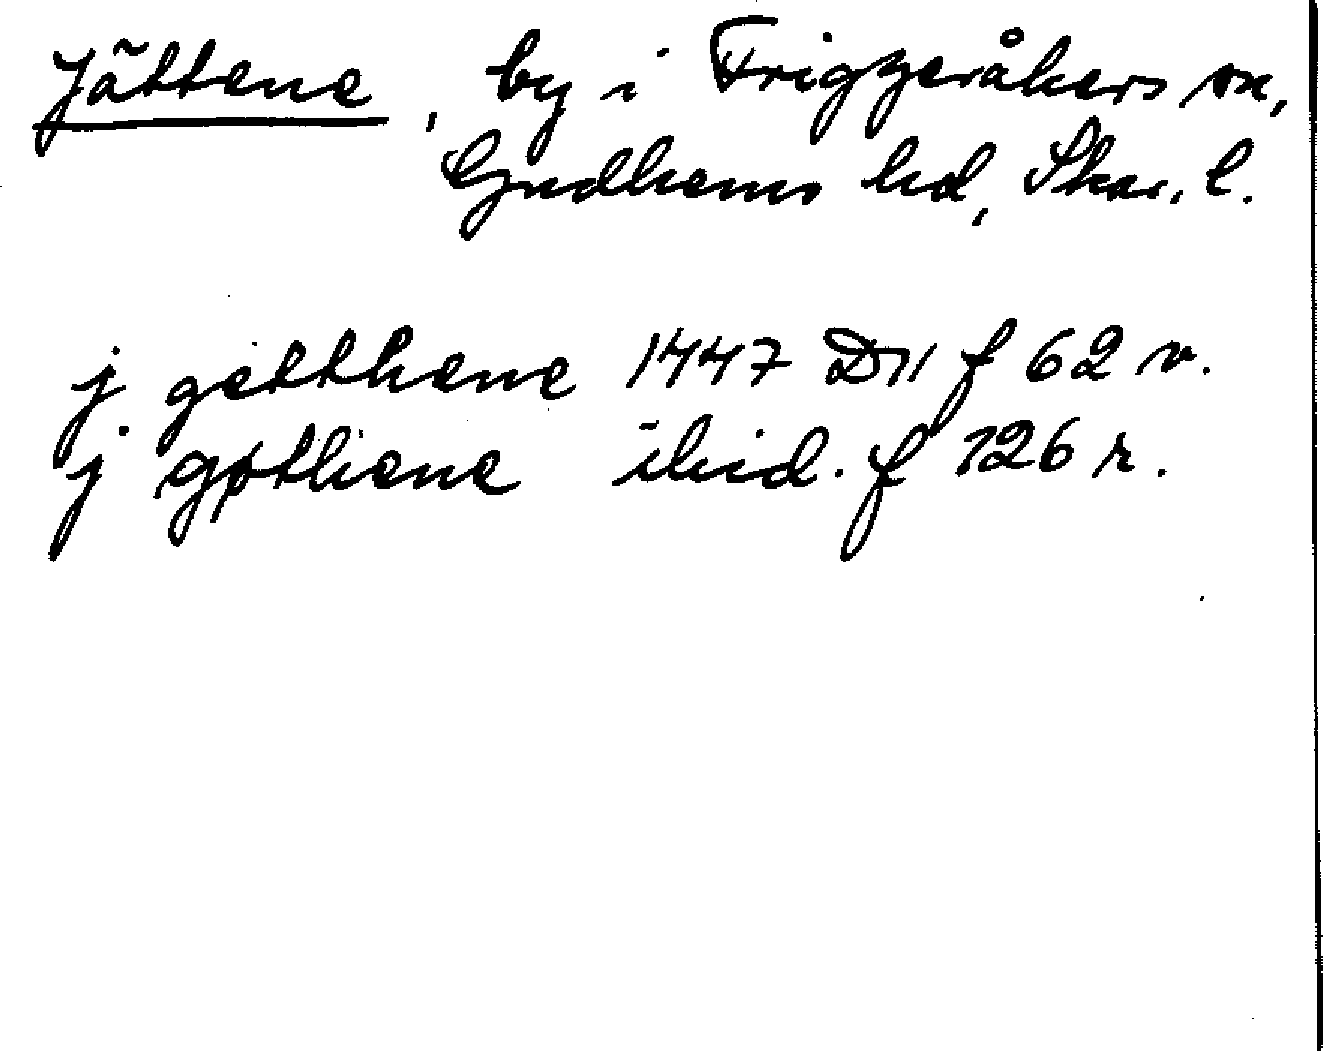 Jättene, by i Friggeråkers sn,
Gudhems hd, Skar. l.
j getthene 1447 D11 f 62 v.
j gøthene ibid. f 126 r.